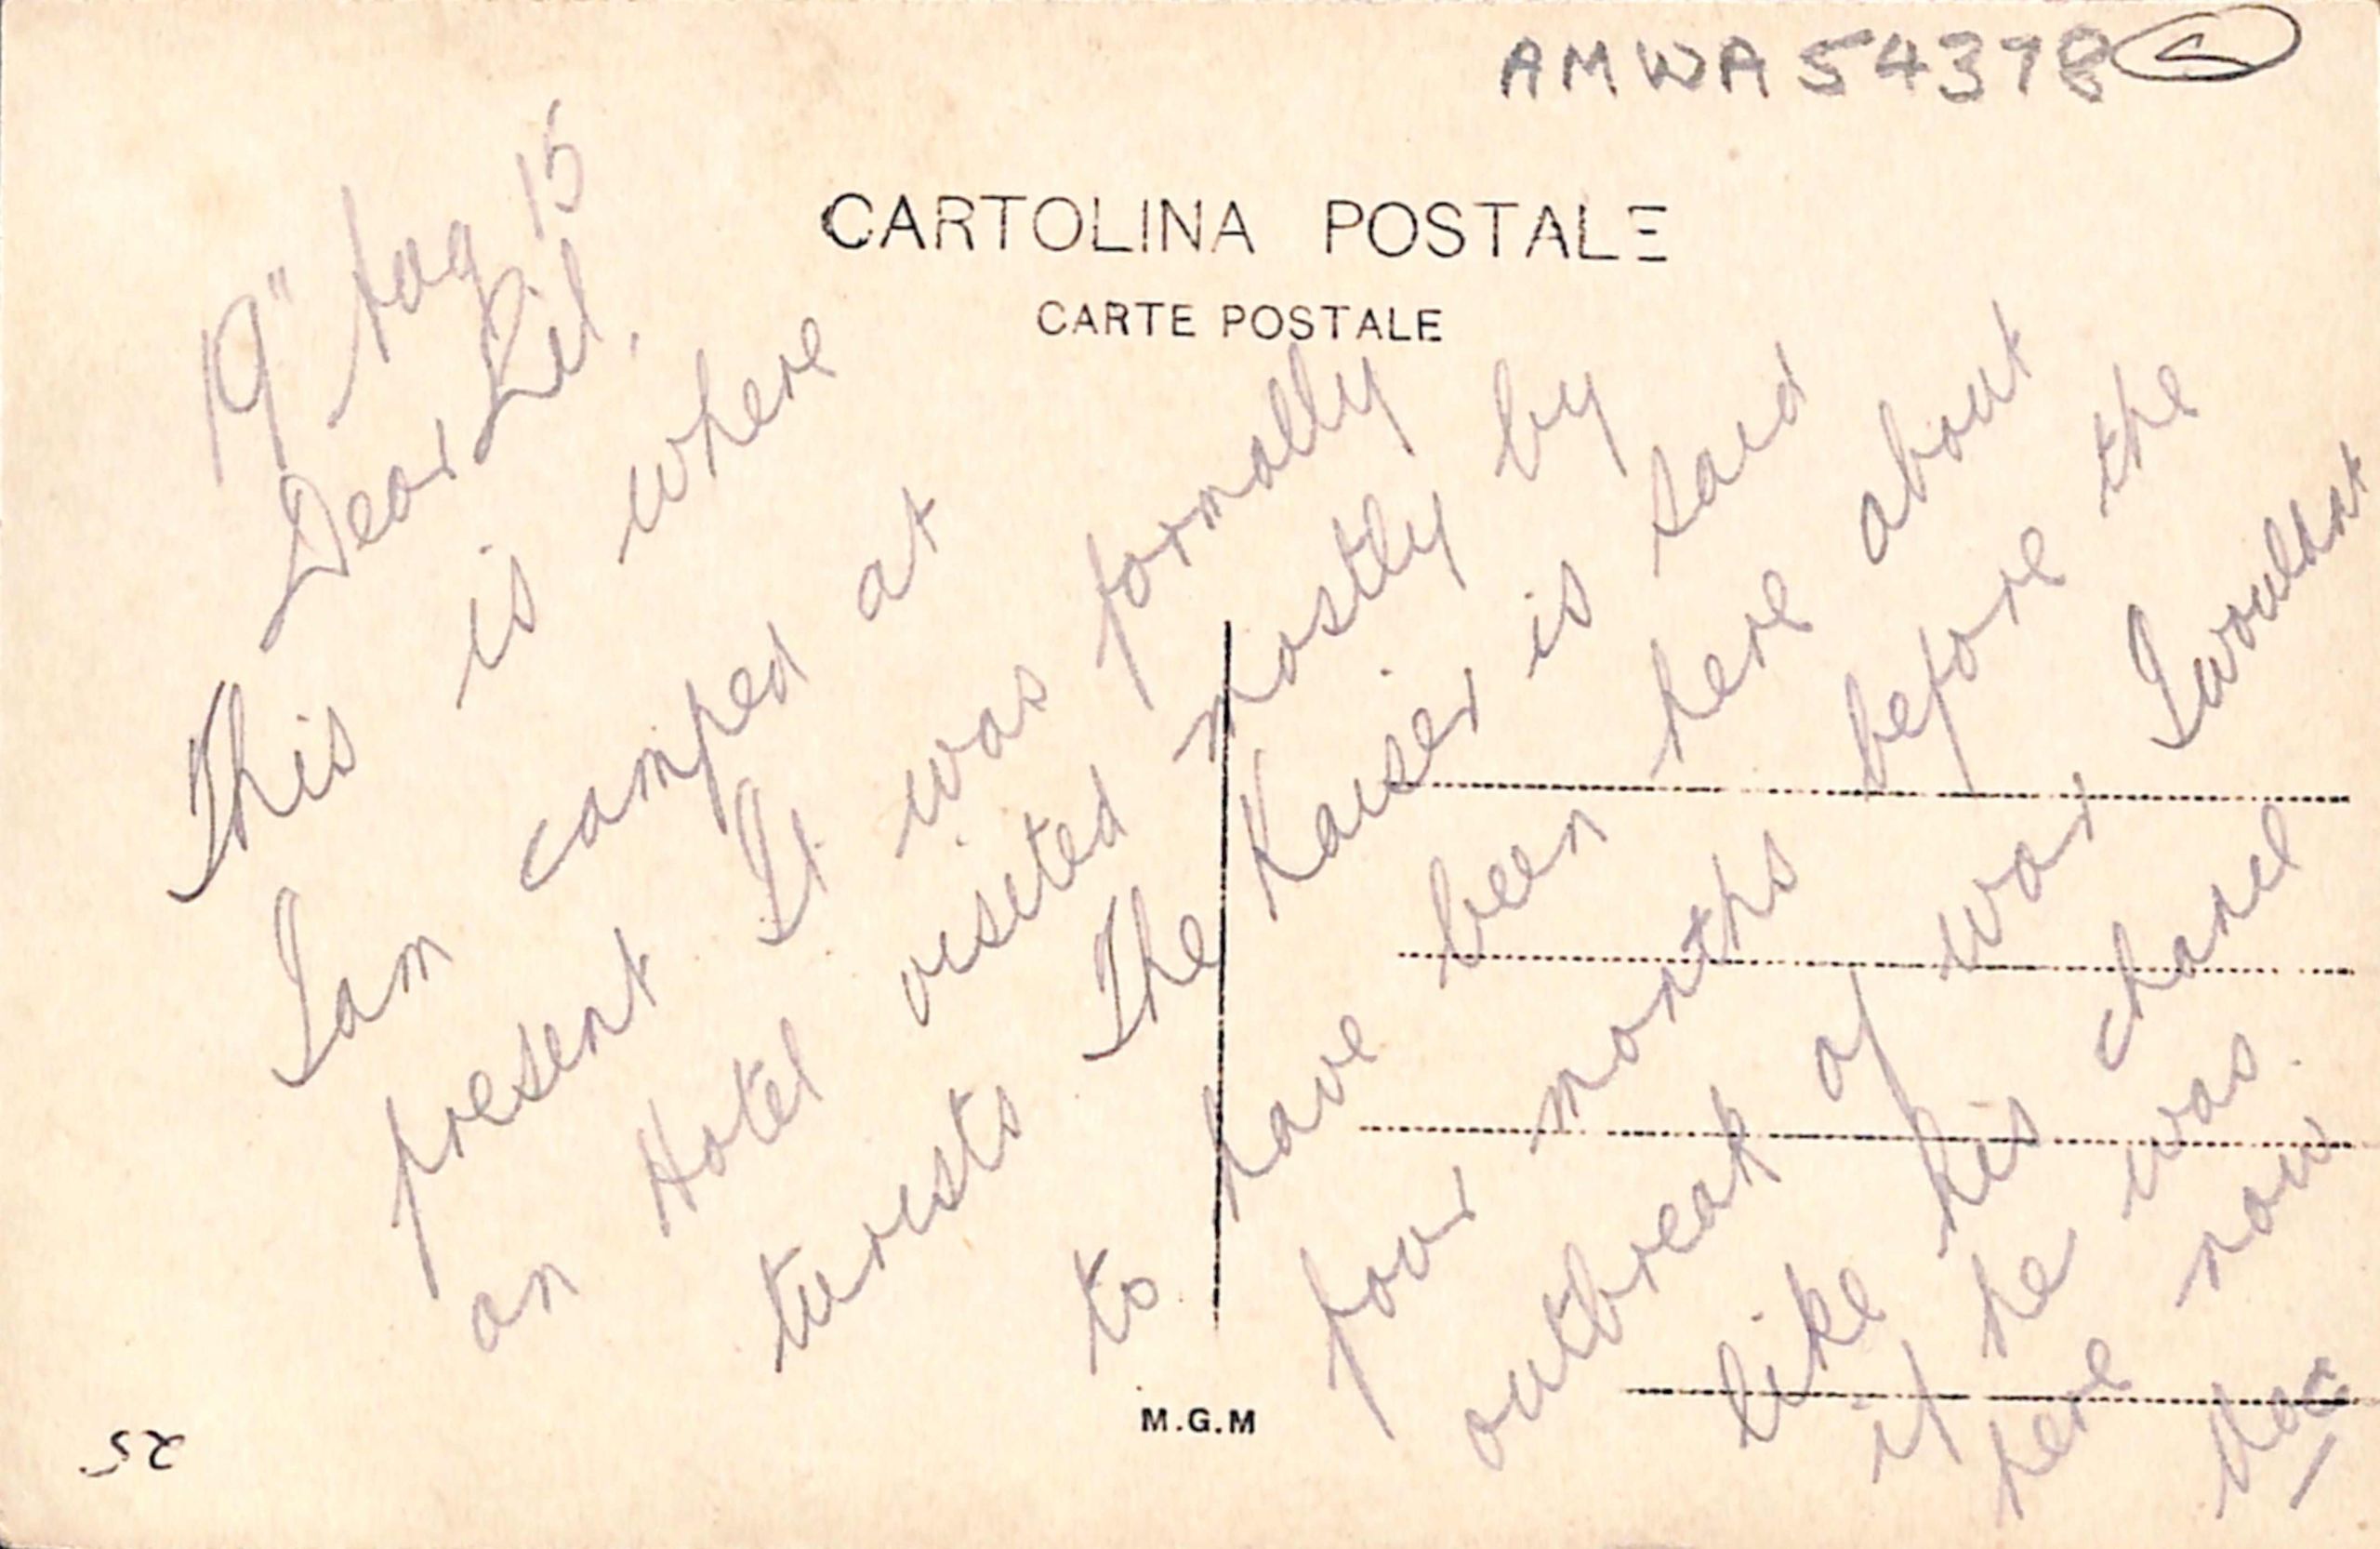 AMWA 54378 5
CARTOLINA POSTALE
CARTE POSTALE
19" Aug 15
Dear Lil.
This is where
I am camped at
present It was formally
an Hotel visited mostly by
turests The Kaiser is said
to have been here about
four months before the
outbreak of war I wouldnt
like his chance
if he was
here now
M.G.M
25